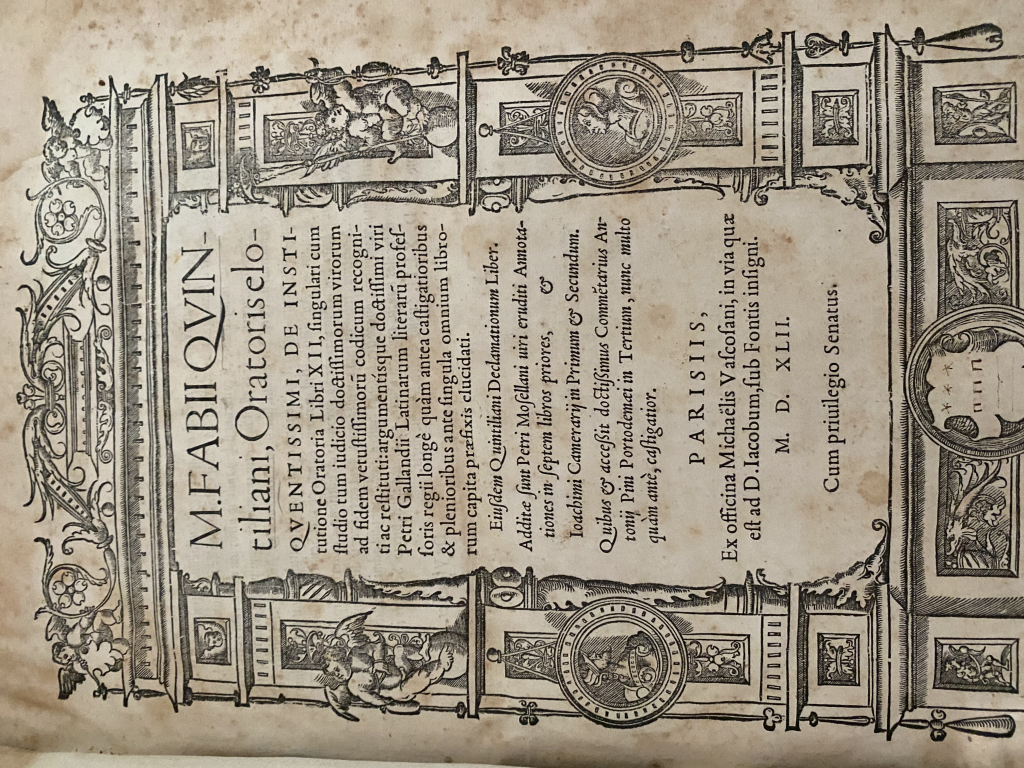 M. FABII QVIN-
tiliani, Oratoris elo-
QVENTISSIMI, DE INSTI-
tutione Oratoria Libri XII, singulari cum
studio tum iudicio doctissimorum virorum
ad fidem vetustissimorū codicum recogni-
ti ac restituti: argumentísque doctissimi viri
Petri Gallandii Latinarum literarū profes-
soris regii longè quàm antea castigatioribus
& plenioribus ante singula omnium libro-
rum capita præfixis elucidati.
Eiusdem Quintiliani Declamationum Liber.
Additæ sunt Petri Mosellani uiri eruditi Annota-
tiones in septem libros priores, &
Ioachimi Camerarij in Primum & Secundum.
Quibus & accessit doctissimus Commētarius An-
tonij Pini Portodemæi in Tertium, nunc multo
quàm antè, castigatior.
PARISIIS,
Ex officina Michaëlis Vascosani, in via quæ
est ad D. Iacobum, sub Fontis insigni.
M. D. XLII.
Cum priuilegio Senatus.